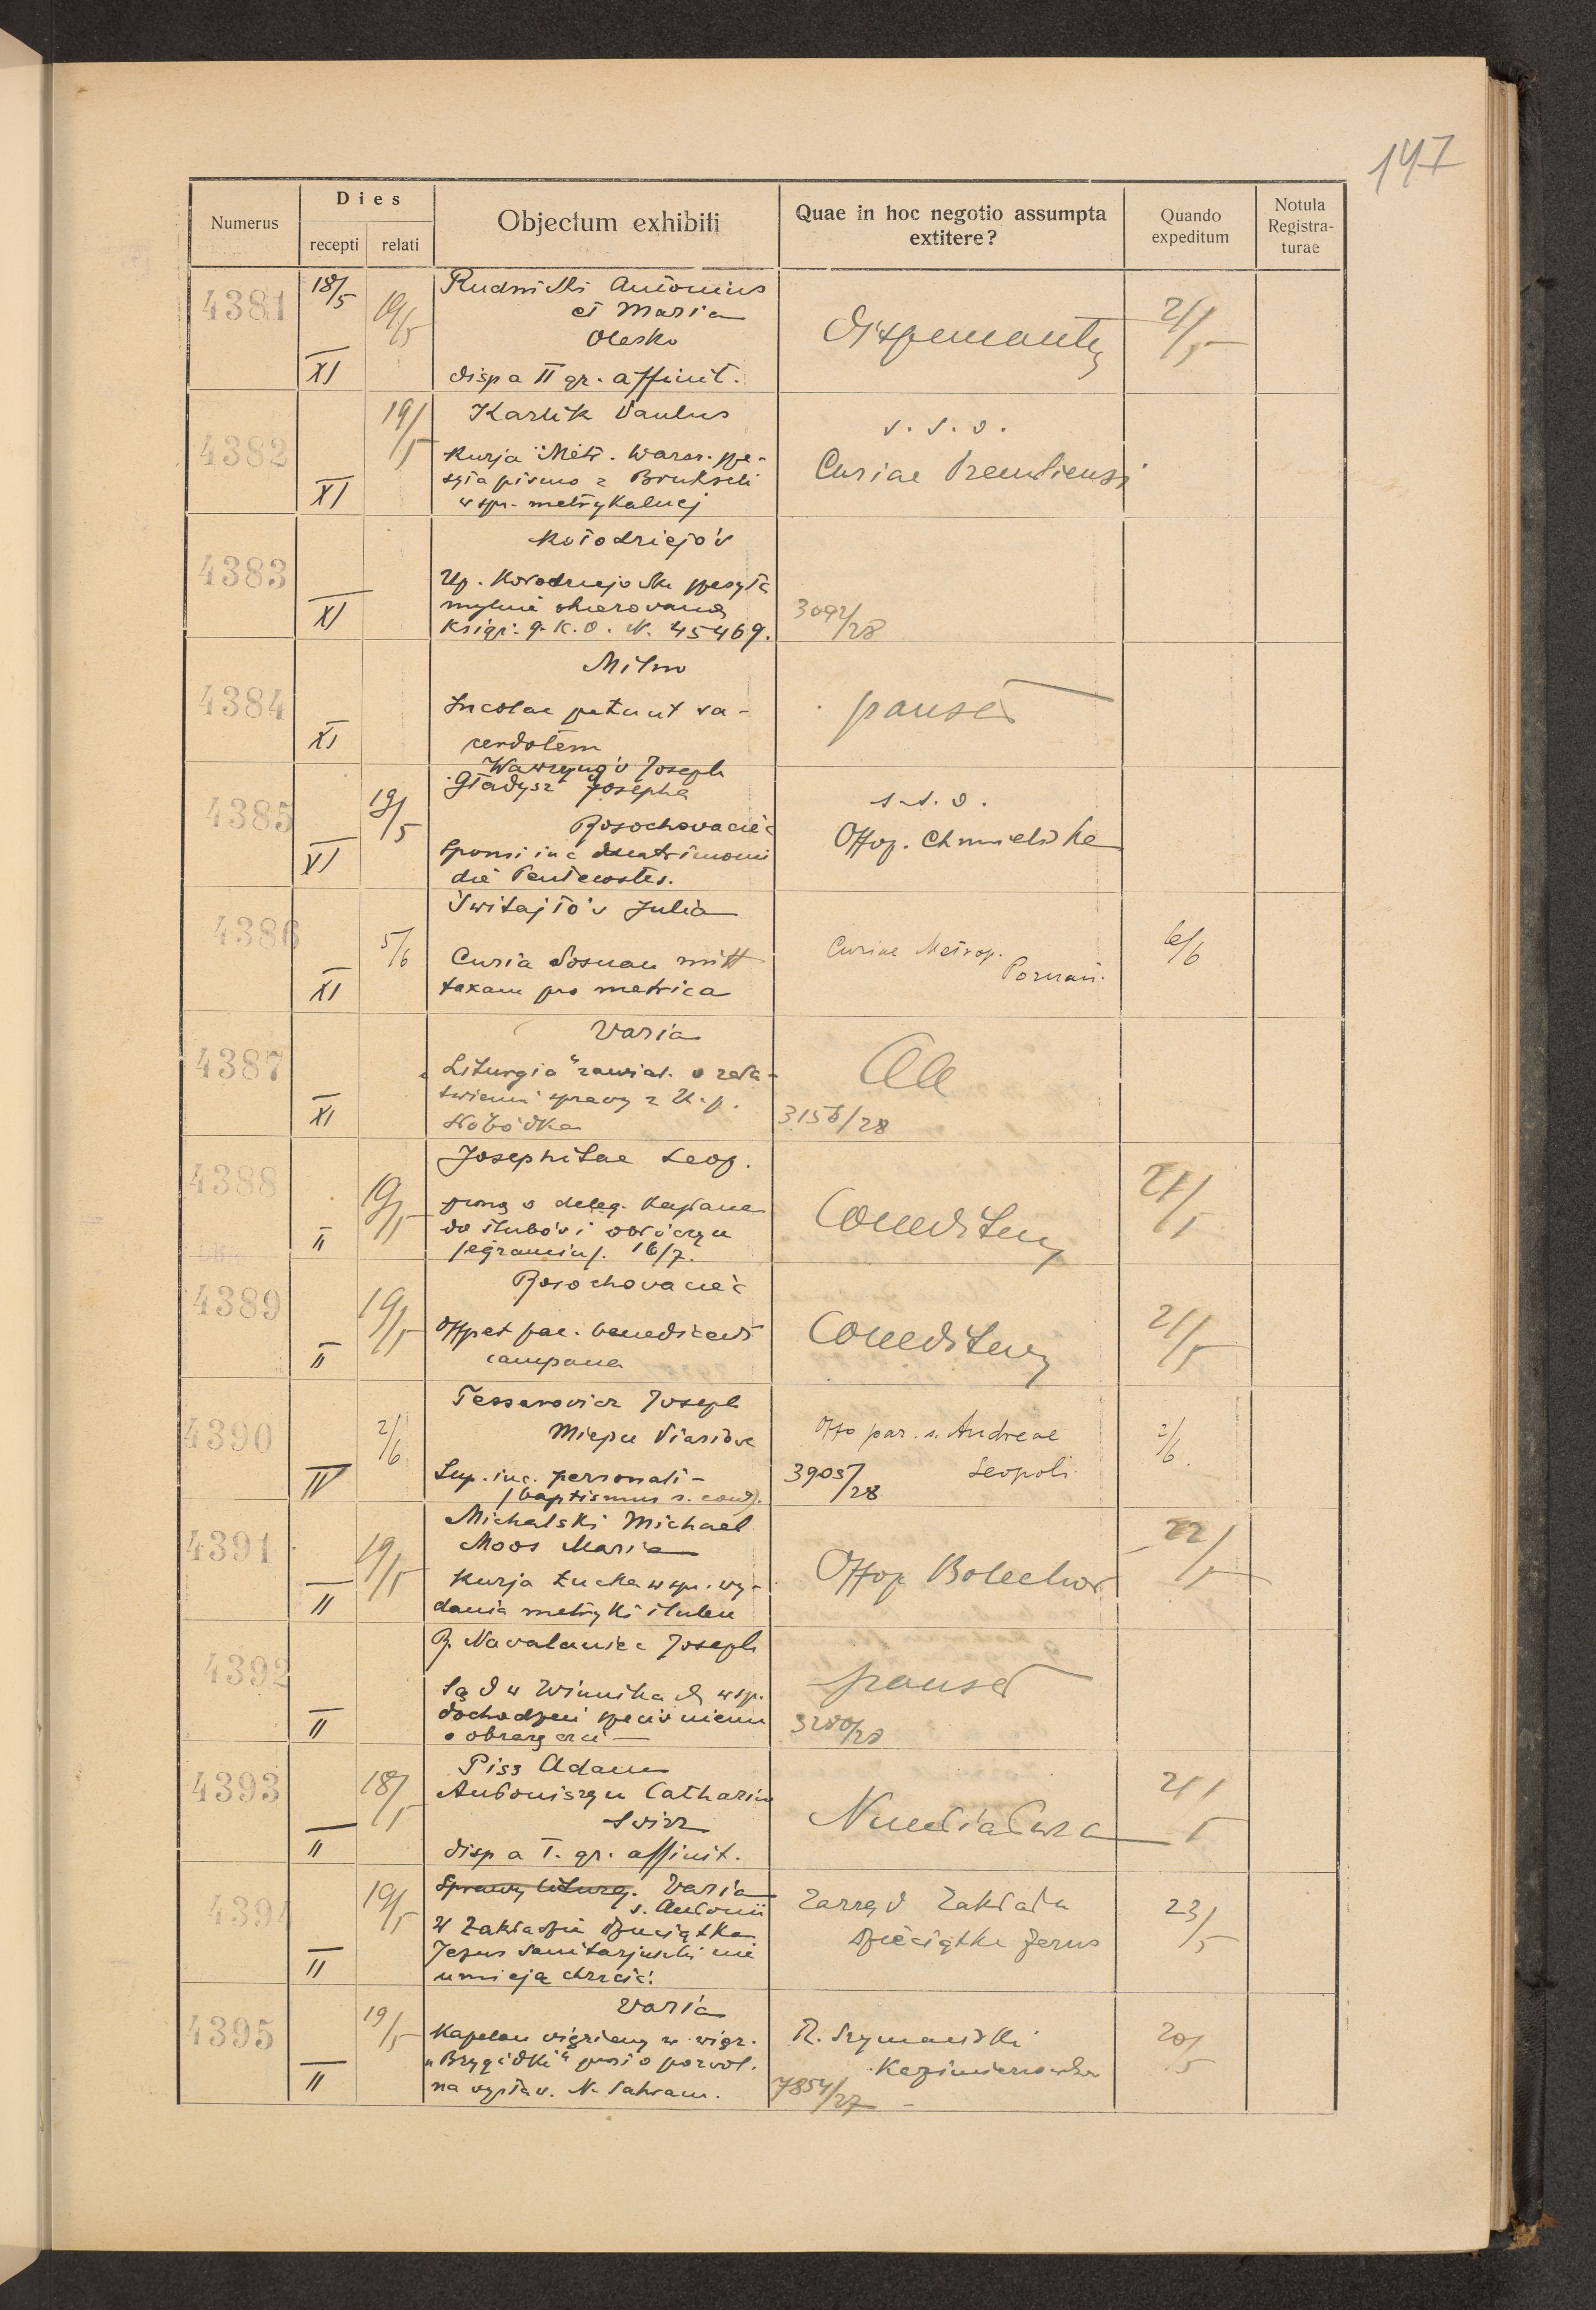 147
Numerus
Dies
recepti relati
Objectum exhibiti
Quae in hoc negotio assumpta
extitere?
Quando
expeditum
Notula
Registra-
turae
4381
18/5
19/5
XI
Rudnicki Antonius
et Maria
Olesko
disp a II gr. affinit.
21/5
4382
19/5
XI
Karlik Paulus
Kurja Metr. Warsz. prze-
syła pismo z Brukseli
w spr. metrykalnej
s. s. o.
Curiae Premiliensi
4383
XI
Kołodziejów
mylnie skierowaną
N. 45469.
3092/28
4384
XI
Milno
Incolae petunt sa-
cerdotem
pauset
4385
19/5
XI
Wawrynów Joseph
Gładysz Josepha
Rosochovacieć
Sponsi
die Pentecostes.
s. s. o.
Offop. Chmieliska
4386
5/6
XI
Świtajłów Julia
Curia Posnan mitt
taxam pro metrica
Curiae Metrop.
Poznań.
6/6
4387
XI
Varia
„Liturgia" zawiad. o zała-
twieniu sprawy z U. p.
Słobódka
Aa
3156/28
4388
19/5
II
Josephitae Leop.
proszą o deleg. kapłana
do ślubów i obłóczyn
16/7.
Conceditur
21/5
4389
19/5
II
Rosochovacieć
Offpet fac. benedicendi
campana
Conceditur
21/5
4390
2/6
IV
Tessarovicz Joseph
Sup. inc. personali-
(baptismus s. cond).
Offo par. s. Andreae
Leopoli
3905/28
2/6
4391
19/5
II
Michalski Michael
Moos Maria
Kurja Łucka w spr. wy-
dania metryki ślubu
Offop Bolechov
22/5
4392
II
R. Navalaniec Joseph
Sąd w Winnikach w sp.
dochodzeń przeciw niemu
o obrazę czci
pauset
3280/28
4393
18/5
II
Pisz Adam
Antoniszyn Catharina
Swirz
disp a I. gr. affinit.
Nuntiatura
21/5
4394
19/5
II
Sprawy liturg. Varia
s. Antonii
W Zakładzie Dzieciątka
Jezus sanitarjuszki nie
umieją chrzcić.
Zarząd Zakładu
Dzieciątka Jezus
23/5
4395
19/5
II
Varia
Kapelan więzienny w więz.
„Brygidki" prosi o pozwol.
na wystaw. N. Sakram.
R. Szymański
Kazimierzowska
7854/27
20/5